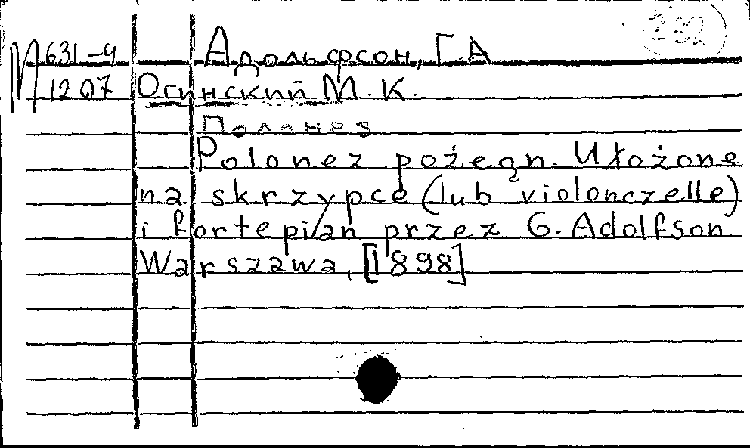 М 631-4 Адольфсон, Г.А
1207 Огинский М. К.
Полонез
Polonez pożegn. Ułożone
na skrzypce (lub violonczelle)
i fortepian przez G. Adolfson
Warszawa, [1898]